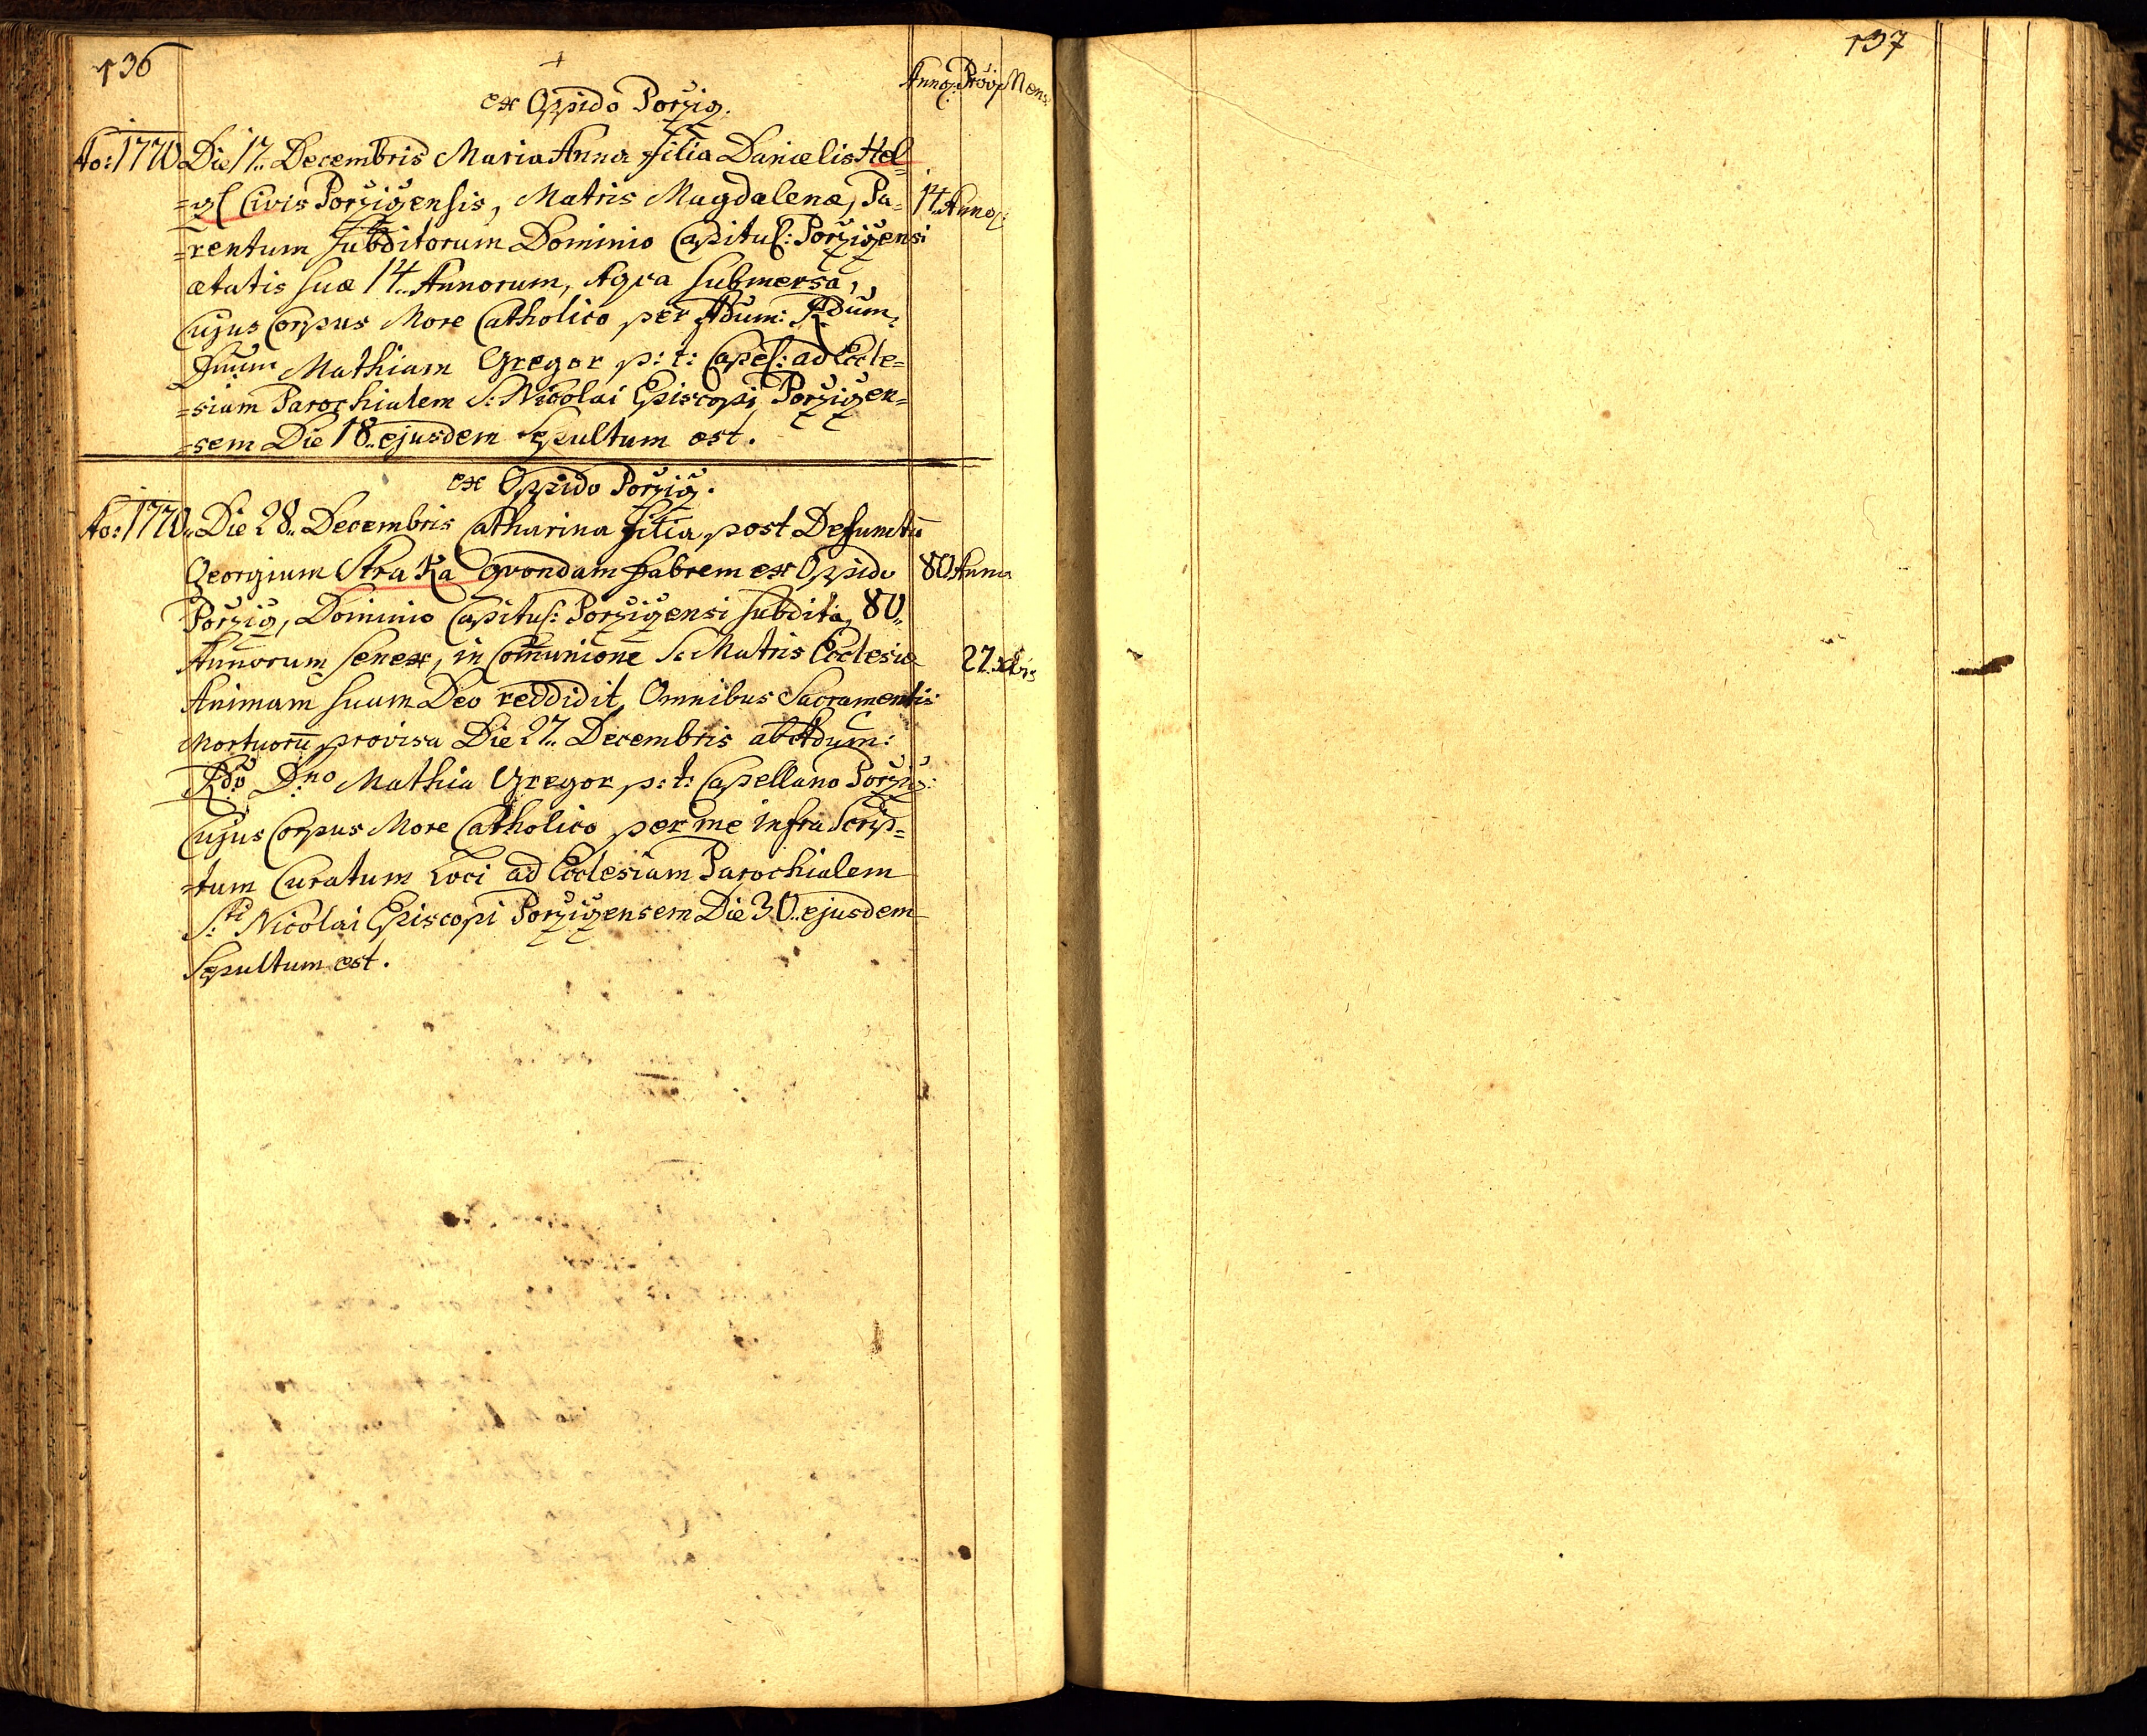 136
Anno: Prov: Mens:
ex Oppido Pořzicz.
Ao: 1770 Die 17.. Decembris Maria Anna filia Danielis Hel=
=zl Civis Pořziczensis, Matris Magdalenæ, Pa= 14. Annor:
=rentum subditorum Dominio Capitul: Pořziczensi
ætatis suæ 14.. Annorum, Aqua submersa,
Cujus Corpus More Catholico per Adum: Rdum:
Dnum Mathiam Gregor p: t: Capel: ad Eccle=
=siam Parochialem S: Nicolai Episcopi Pořziczen=
=sem Die 18.. ejusdem Sepultum est.
ex Oppido Pořzicz.
Ao: 1770.. Die 28.. Decembris Catharina filia post Defunctū
Georgium Straka quondam Fabrem ex Oppido 80 Anno
Pořzicz, Dominio Capitul: Pořziczensi subdita, 80..
Annorum senex, in Communione S: Matris Ecclesiæ 27. xbris
Animam suam Deo reddidit, Omnibus Sacramentis
Mortuorū provisa Die 27.. Decembris ab Adum:
Rdo Dno Mathia Gregor p: t: Capellano Pořzicz:
Cujus Corpus More Catholico per me infra Scrip=
=tum Curatum Loci ad Ecclesiam Parochialem
S:ti Nicolai Episcopi Pořziczensem Die 30.. ejusdem
Sepultum est.
137